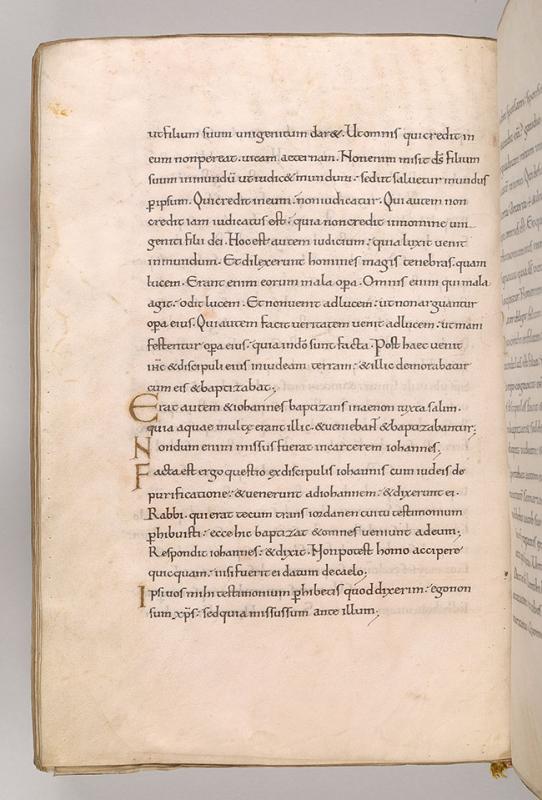 ut filium suum unigenitum dar&. Ut omnis qui credit in
eum non pereat. uitam aeternam. Non enim misit dṡ filium
suum in mundū ut iudic& mundum. sed ut saluetur mundus
p̄ ipsum. Qui credit in eum. non iudicatur. Qui autem non
credit iam iudicatus est. quia non credit in nomine uni
geniti filii dei. Hoc est autem iudicium. quia lux it uenit
in mundum. Et dilexerunt homines magis tenebras. quam
lucem. Erant enim eorum mala opa. Omnis enim qui mala
agit. odit lucem. Et non uenit ad lucem. ut non arguantur
opa eius. Qui autem facit ueritatem uenit ad lucem. ut mani
festentur opa eius. quia in dō sunt facta. Post haec uenit
ihc & discipuli eius in iudeam terram. & illic demorabatur
cum eis & baptizabat;
Erat autem & iohannes baptizans in aenon iuxta salim.
quia aquae multę erant illic. & ueniebant & baptizabantur;
Nondum enim missus fuerat in carcerem iohannes;
Facta est ergo questio ex discipulis iohannis cum iudeis de
purificatione. & uenerunt ad iohannem. & dixerunt ei.
Rabbi. qui erat tecum trans iordanen cui tu testimonium
p̄hibuisti. ecce hic baptizat & omnes ueniunt ad eum;
Respondit iohannes. & dixit. Non potest homo accipere
quicquam. nisi fuerit ei datum de caelo;
Ipsi uos mihi testimonium p̄hibetis quod dixerim. ego non
sum xp̄s. sed quia missus sum ante illum;